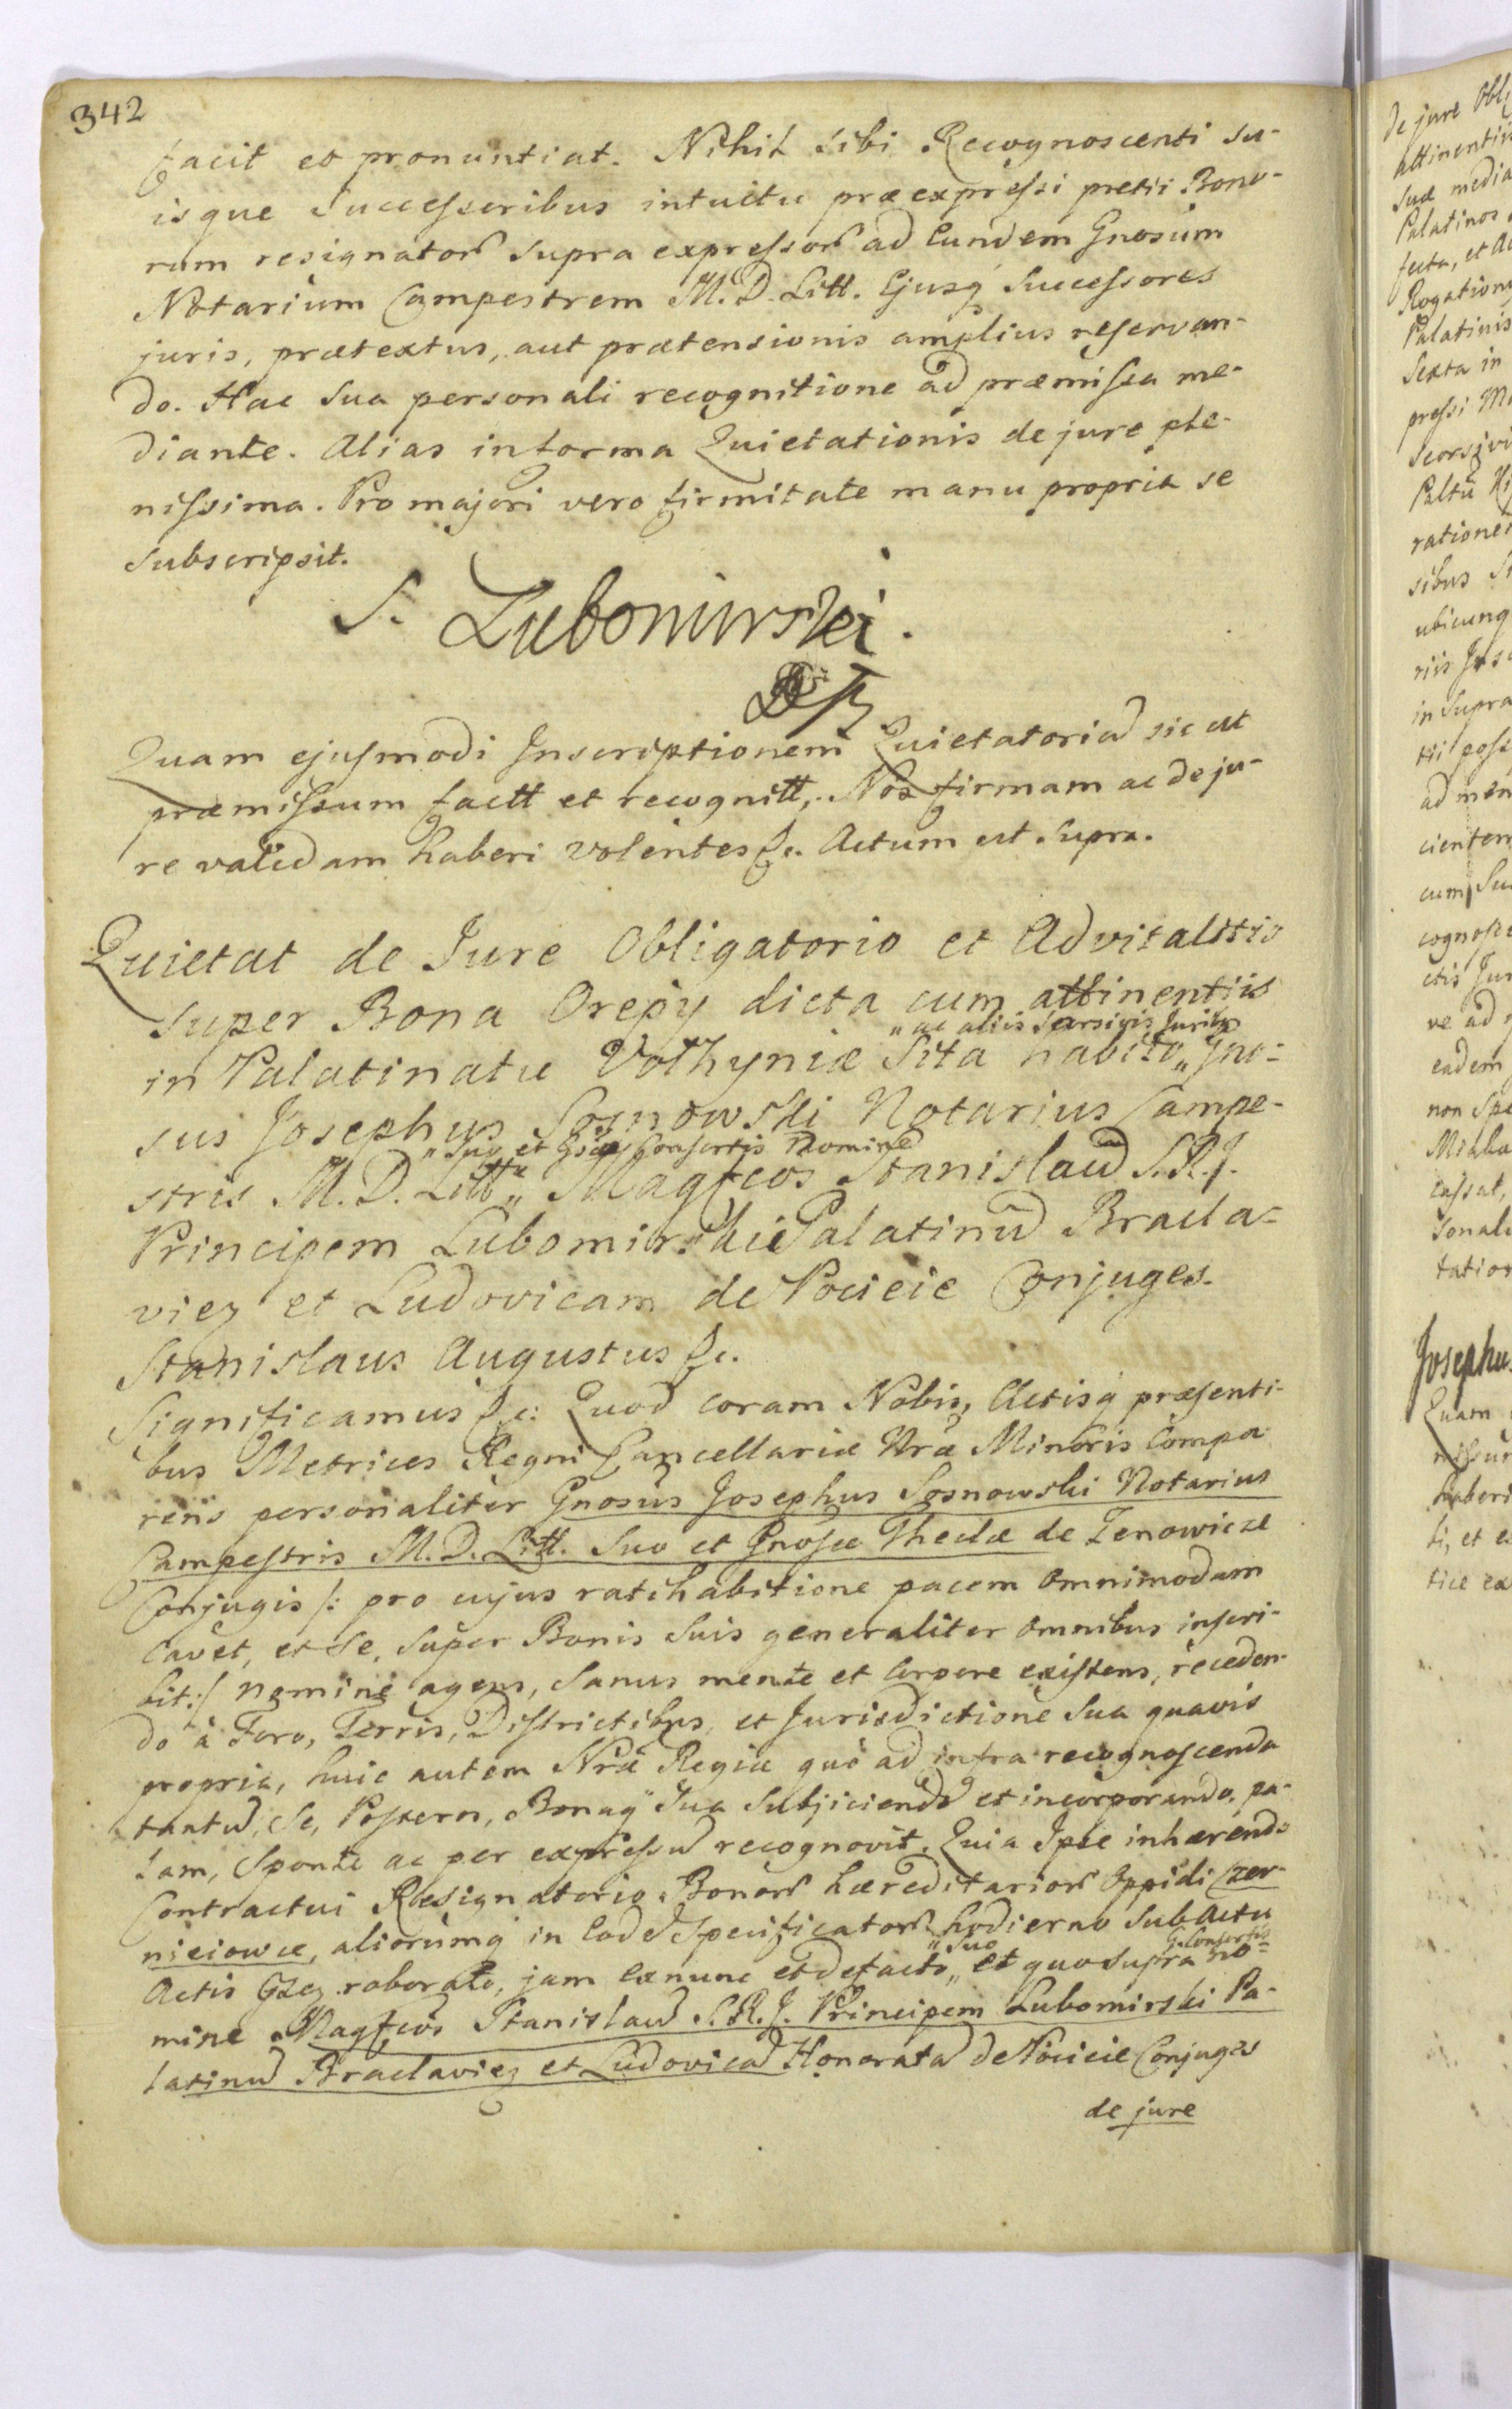 342
facit et pronuntiat. Nihil sibi Recognoscenti su-
isque Successoribus intuitu præexpressi pretii Bono-
rum resignator supra expressor ad Eundem Gnosum
Notarium Campestrem M. D. Litt. Ejusq Successores
juris, prætextus, aut prætensionis amplius reservan-
do. Hac sua personali recognitione ad præmissa me-
diante. Alias in forma Quietationis de jure ple-
nissima. Pro majori vero firmitate manu propria se
subscripsit.
S. Lubomirski.
Quam ejusmodi Inscriptionem Quietatoria sic ut
præmissum factt et recognitt, Nos firmam ac de ju-
re validam haberi volentes &c. Actum ut supra.
Quietat de Jure Obligatorio et Advitalitio
super Bona Orepy dicta cum attinentiis
„ac aliis sparsivis Juribq
in Palatinatu Volhyniæ Sita habito„ Gno-
sus Josephus Sosnowski Notarius Campe-
„suo et Gsæ Consortis Nomine
stris M. D. Litt„ Magfcos Stanislau S.R.J.
Principem Lubomirski Palatinu Bracla-
viez et Ludovicam de Pocieie Conjuges.
Stanislaus Augustus &c.
Significamus &c: Quod coram Nobis, Actisq præsenti-
bus Metrices Regni Cancellariæ Nræ Minoris Compa
rens personaliter Gnosus Josephus Sosnowski Notarius
Campestris M. D. Litt. Suo et Gnosæ Theclæ de Zenowicze
Conjugis /: pro cujus ratihabitione pacem omnimodam
Cavet, et Se, super Bonis Suis generaliter omnibus inscri-
bit:/ nomine agens, Sanus mente et Corpore existens, receden-
do à Foro, Terris, Districtibus, et Jurisdictione Sua quavis
propria, huic autem Nræ Regiæ quò ad infra recognoscenda
tantu, Se, Postern, Bonaq Sua Subjiciendo et incorporando, pa-
lam, Sponte ac per expressu recognovit. Quia Ipse inhærendo
Contractui Resignatorio Bonor hæreditarior Oppidi Czer-
nieiowce, aliorumq in Eode Specificator hodierno Sub Actu
„Suo G. Consortis
Actis Gsez roborato, jam exnunc et defacto„ et quo supra no-
mine Magfcos Stanislau S. R. J. Principem Lubomirski Pa-
latinu Braclaviez et Ludovica Honorata de Pocieie Conjuges
de jure
De jure Obli
attinentii
Suæ media
Palatinos
Rogation
Palatinis
Sexta in
rationes
in Supra
ad men
cienter
eadem
non Spe
cassat,
sonali
tation
Josephu
Quam
haberi